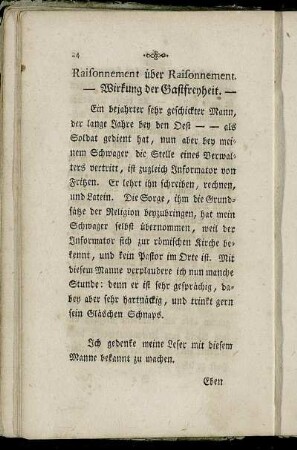 24
Raisonnement über Raisonnement.
— Wirkung der Gastfreyheit. —
Ein bejahrter sehr geschickter Mann,
der lange Jahre bey den Oest — — als
Soldat gedient hat, nun aber bey mei-
nem Schwager die Stelle eines Verwal-
ters vertritt, ist zugleich Informator von
Fritzen. Er lehrt ihn schreiben, rechnen,
und Latein. Die Sorge, ihm die Grund-
sätze der Religion beyzubringen, hat mein
Schwager selbst übernommen, weil der
Informator sich zur römischen Kirche be-
kennt, und kein Pastor im Orte ist. Mit
diesem Manne verplaudere ich nun manche
Stunde: denn er ist sehr gesprächig, da-
bey aber sehr hartnäckig, und trinkt gern
sein Gläschen Schnaps.
Ich gedenke meine Leser mit diesem
Manne bekannt zu machen.
Eben